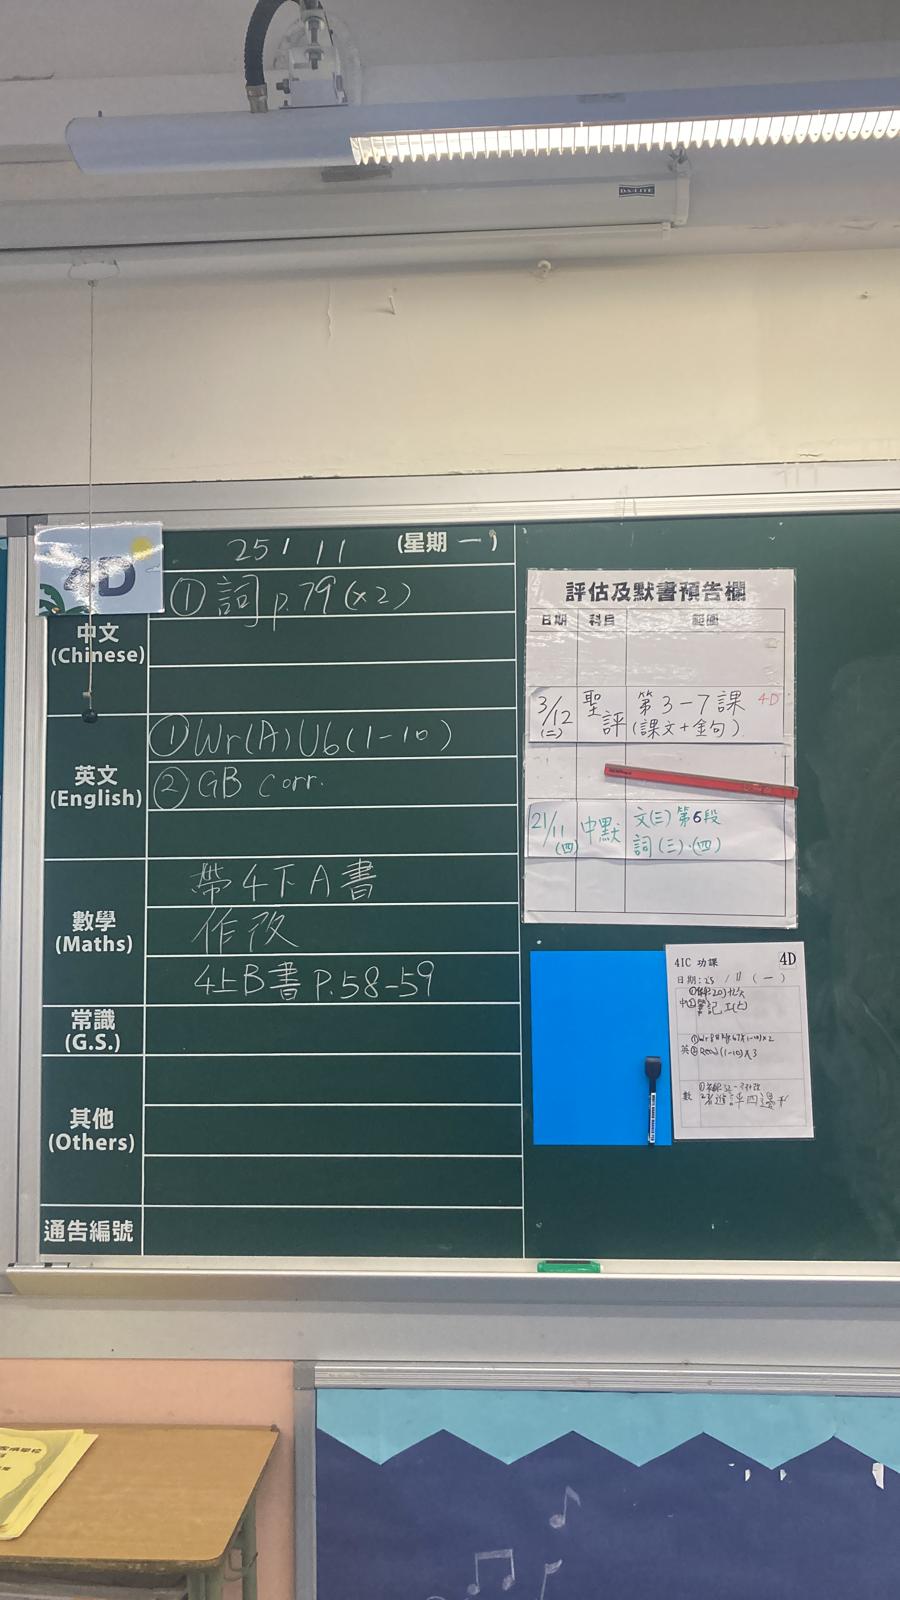 DA-LITE
4D
25 / 11 (星期 一)
中文
(Chinese)
① 詞 p.79 (x2)
英文
(English)
① Wr(A) U6 (1-10)
② GB Corr.
數學
(Maths)
帶4下A書
作改
4上B書 P.58-59
常識
(G.S.)
其他
(Others)
通告編號
評估及默書預告欄
日期 科目 範圍
3/12 (二) 聖評 第3-7課 4D
(課文+金句)
21/11 (四) 中默 文(三)第6段
詞(三)、(四)
4IC 功課 4D
日期: 25 / 11 (一)
中
筆記
英 ② Read (1-10) x3
數